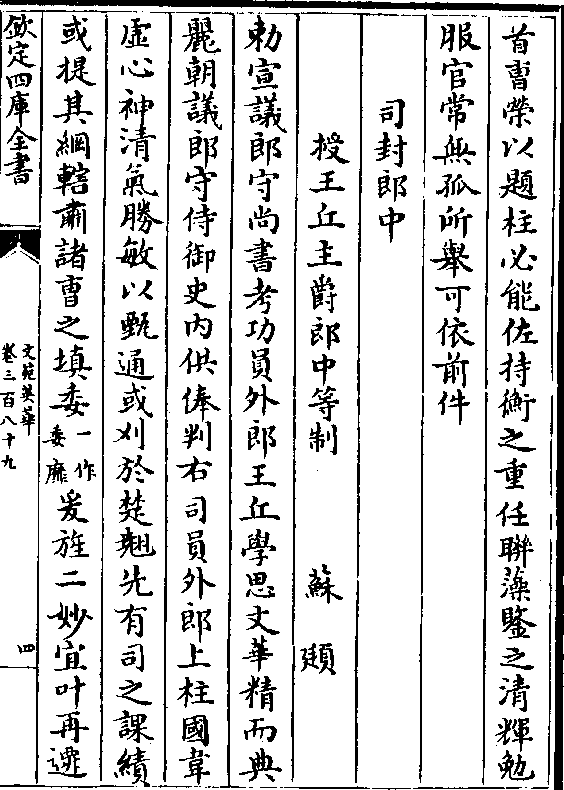 首曹榮以題柱必能佐持衡之重任聯藻鑒之清輝勉
服官常無孤所舉可依前件
司封郎中
授王丘主爵郎中等制 蘇頲
勅宣議郎守尚書考功員外郎王丘學思文華精而典
麗朝議郎守侍御史内供俸判右司員外郎上柱國韋
虛心神清氣勝敏以甄通或刈於楚翹先有司之課績
或提其綱轄肅諸曹之填委一作委靡爰旌二妙宜叶再遷
欽定四庫全書
文苑英華
卷三百八十九
四